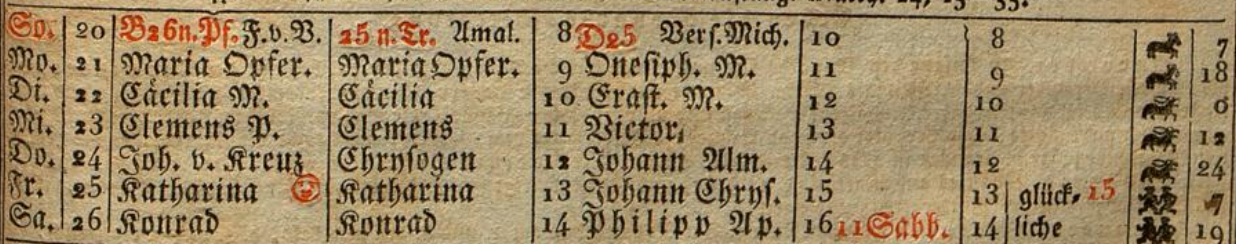 So. 20 B26n.Pf. F.v.V. 25 n.Tr. Amal. 8 D25 Vers.Mich. 10 8 7
Mo. 21 Maria Opfer. Maria Opfer. 9 Onesiph. M. 11 9 18
Di. 22 Cäcilia M. Cäcilia 10 Erast. M. 12 10
Mi. 23 Clemens P. Clemens 11 Victor. 13 11 12
Do. 24 Joh. v. Kreuz Chrysogen 12 Johann Alm. 14 12 24
Fr. 25 Katharina Katharina 13 Johann Chrys. 15 13 glück- 15 7
Sa. 26 Konrad Konrad 14 Philipp Ap. 16 11 Sabb. 14 liche 19